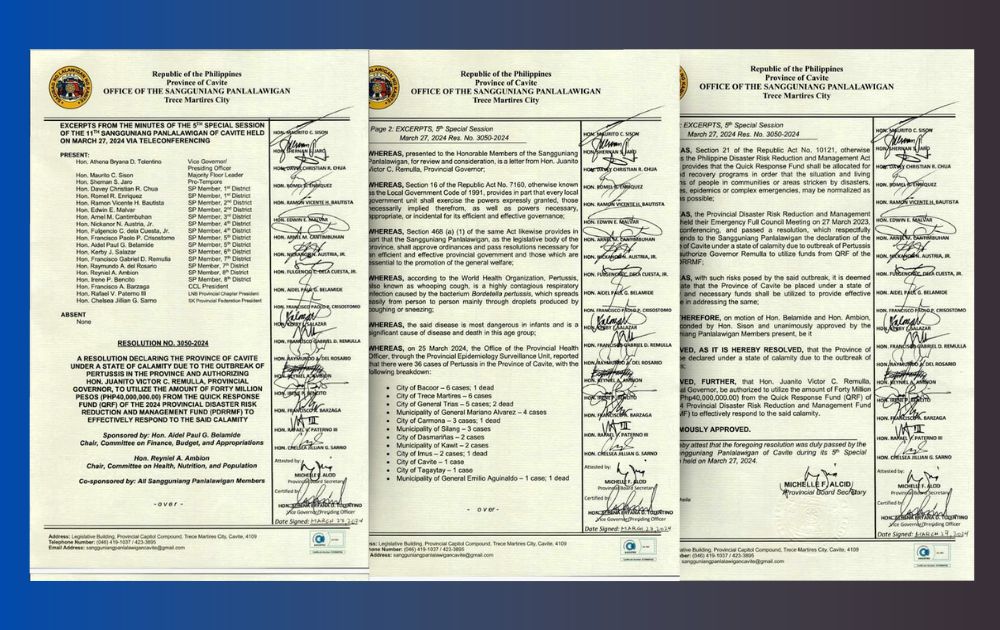 Republic of the Philippines
Province of Cavite
OFFICE OF THE SANGGUNIANG PANLALAWIGAN
Trece Martires City
EXCERPTS FROM THE MINUTES OF THE 5TH SPECIAL SESSION
OF THE 11TH SANGGUNIANG PANLALAWIGAN OF CAVITE HELD
ON MARCH 27, 2024 VIA TELECONFERENCING
PRESENT:
Hon. Athena Bryana D. Tolentino Vice Governor/
Presiding Officer
Hon. Maurito C. Sison Majority Floor Leader
Hon. Shernan S. Jaro Pro-Tempore
Hon. Davey Christian R. Chua SP Member, 1st District
Hon. Romel R. Enriquez SP Member, 2nd District
Hon. Ramon Vicente H. Bautista SP Member, 2nd District
Hon. Edwin E. Malvar SP Member, 3rd District
Hon. Arnel M. Cantimbuhan SP Member, 3rd District
Hon. Nickanor N. Austria, Jr. SP Member, 4th District
Hon. Fulgencio C. dela Cuesta, Jr. SP Member, 4th District
Hon. Francisco Paolo P. Crisostomo SP Member, 5th District
Hon. Aidel Paul G. Belamide SP Member, 5th District
Hon. Kerby J. Salazar SP Member, 6th District
Hon. Francisco Gabriel D. Remulla SP Member, 7th District
Hon. Raymundo A. del Rosario SP Member, 7th District
Hon. Reyniel A. Ambion SP Member, 8th District
Hon. Irene P. Bencito SP Member, 8th District
Hon. Francisco A. Barzaga CCL President
Hon. Rafael V. Paterno III LNB Provincial Chapter President
Hon. Chelsea Jillian G. Sarno SK Provincial Federation President
ABSENT
None
RESOLUTION NO. 3050-2024
A RESOLUTION DECLARING THE PROVINCE OF CAVITE
UNDER A STATE OF CALAMITY DUE TO THE OUTBREAK OF
PERTUSSIS IN THE PROVINCE AND AUTHORIZING
HON. JUANITO VICTOR C. REMULLA, PROVINCIAL
GOVERNOR, TO UTILIZE THE AMOUNT OF FORTY MILLION
PESOS (PHP40,000,000.00) FROM THE QUICK RESPONSE
FUND (QRF) OF THE 2024 PROVINCIAL DISASTER RISK
REDUCTION AND MANAGEMENT FUND (PDRRMF) TO
EFFECTIVELY RESPOND TO THE SAID CALAMITY
Sponsored by: Hon. Aidel Paul G. Belamide
Chair, Committee on Finance, Budget, and Appropriations
Hon. Reyniel A. Ambion
Chair, Committee on Health, Nutrition, and Population
Co-sponsored by: All Sangguniang Panlalawigan Members
- o v e r -
HON. MAURITO C. SISON
HON. SHERNAN S. JARO
HON. DAVEY CHRISTIAN R. CHUA
HON. ROMEL R. ENRIQUEZ
HON. RAMON VICENTE H. BAUTISTA
HON. EDWIN E. MALVAR
HON. ARNEL M. CANTIMBUHAN
HON. NICKANOR N. AUSTRIA, JR.
HON. FULGENCIO C. DELA CUESTA, JR.
HON. AIDEL PAUL G. BELAMIDE
HON. FRANCISCO PAOLO P. CRISOSTOMO
HON. KERBY J. SALAZAR
HON. FRANCISCO GABRIEL D. REMULLA
HON. RAYMUNDO A. DEL ROSARIO
HON. REYNIEL A. AMBION
HON. IRENE P. BENCITO
HON. FRANCISCO A. BARZAGA
HON. RAFAEL V. PATERNO III
HON. CHELSEA JILLIAN G. SARNO
Attested by:
MICHELLE F. ALCID
Provincial Board Secretary
Certified by:
HON. ATHENA BRYANA D. TOLENTINO
Vice Governor/Presiding Officer
Date Signed: MARCH 27, 2024
Address: Legislative Building, Provincial Capitol Compound, Trece Martires City, Cavite, 4109
Telephone Number: (046) 419-1037 / 423-3895
Email Address: sangguniangpanlalawigancavite@gmail.com
Republic of the Philippines
Province of Cavite
OFFICE OF THE SANGGUNIANG PANLALAWIGAN
Trece Martires City
Page 2: EXCERPTS, 5th Special Session
March 27, 2024 Res. No. 3050-2024
WHEREAS, presented to the Honorable Members of the Sangguniang
Panlalawigan, for review and consideration, is a letter from Hon. Juanito
Victor C. Remulla, Provincial Governor;
WHEREAS, Section 16 of the Republic Act No. 7160, otherwise known
as the Local Government Code of 1991, provides in part that every local
government unit shall exercise the powers expressly granted, those
necessarily implied therefrom, as well as powers necessary,
appropriate, or incidental for its efficient and effective governance;
WHEREAS, Section 468 (a) (1) of the same Act likewise provides in
part that the Sangguniang Panlalawigan, as the legislative body of the
province, shall approve ordinances and pass resolutions necessary for
an efficient and effective provincial government and those which are
essential to the promotion of the general welfare;
WHEREAS, according to the World Health Organization, Pertussis,
also known as whooping cough, is a highly contagious respiratory
infection caused by the bacterium Bordetella pertussis, which spreads
easily from person to person mainly through droplets produced by
coughing or sneezing;
WHEREAS, the said disease is most dangerous in infants and is a
significant cause of disease and death in this age group;
WHEREAS, on 25 March 2024, the Office of the Provincial Health
Officer, through the Provincial Epidemiology Surveillance Unit, reported
that there were 36 cases of Pertussis in the Province of Cavite, with the
following breakdown:
• City of Bacoor – 6 cases; 1 dead
• City of Trece Martires – 6 cases
• City of General Trias – 5 cases; 2 dead
• Municipality of General Mariano Alvarez – 4 cases
• City of Carmona – 3 cases; 1 dead
• Municipality of Silang – 3 cases
• City of Dasmariñas – 2 cases
• Municipality of Kawit – 2 cases
• City of Imus – 2 cases; 1 dead
• City of Cavite – 1 case
• City of Tagaytay – 1 case
• Municipality of General Emilio Aguinaldo – 1 case; 1 dead
- o v e r -
HON. MAURITO C. SISON
HON. SHERNAN S. JARO
HON. DAVEY CHRISTIAN R. CHUA
HON. ROMEL R. ENRIQUEZ
HON. RAMON VICENTE H. BAUTISTA
HON. EDWIN E. MALVAR
HON. ARNEL M. CANTIMBUHAN
HON. NICKANOR N. AUSTRIA, JR.
HON. FULGENCIO C. DELA CUESTA, JR.
HON. AIDEL PAUL G. BELAMIDE
HON. FRANCISCO PAOLO P. CRISOSTOMO
HON. KERBY J. SALAZAR
HON. FRANCISCO GABRIEL D. REMULLA
HON. RAYMUNDO A. DEL ROSARIO
HON. REYNIEL A. AMBION
HON. IRENE P. BENCITO
HON. FRANCISCO A. BARZAGA
HON. RAFAEL V. PATERNO III
HON. CHELSEA JILLIAN G. SARNO
Attested by:
MICHELLE F. ALCID
Provincial Board Secretary
Certified by:
HON. ATHENA BRYANA D. TOLENTINO
Vice Governor/Presiding Officer
Date Signed: MARCH 27, 2024
ess: Legislative Building, Provincial Capitol Compound, Trece Martires City, Cavite, 4109
hone Number: (046) 419-1037 / 423-3895
Address: sangguniangpanlalawigancavite@gmail.com
Republic of the Philippines
Province of Cavite
OFFICE OF THE SANGGUNIANG PANLALAWIGAN
Trece Martires City
: EXCERPTS, 5th Special Session
March 27, 2024 Res. No. 3050-2024
AS, Section 21 of Republic Act No. 10121, otherwise
s the Philippine Disaster Risk Reduction and Management Act
provides that the Quick Response Fund shall be allocated for
d recovery programs in order that the situation and living
s of people in communities or areas stricken by disasters,
es, epidemics or complex emergencies, may be normalized as
s possible;
AS, the Provincial Disaster Risk Reduction and Management
held their Emergency Full Council Meeting on 27 March 2023,
conferencing, and passed a resolution, which respectfully
ends to the Sangguniang Panlalawigan the declaration of the
of Cavite under a state of calamity due to outbreak of Pertussis
authorize Governor Remulla to utilize funds from QRF of the
DRRMF;
AS, with such risks posed by the said outbreak, it is deemed
ate that the Province of Cavite be placed under a state of
and necessary funds shall be utilized to provide effective
in addressing the same;
HEREFORE, on motion of Hon. Belamide and Hon. Ambion,
conded by Hon. Sison and unanimously approved by the
niang Panlalawigan Members present, be it
VED, AS IT IS HEREBY RESOLVED, that the Province of
e declared under a state of calamity due to the outbreak of
VED, FURTHER, that Hon. Juanito Victor C. Remulla,
al Governor, be authorized to utilize the amount of Forty Million
Php40,000,000.00) from the Quick Response Fund (QRF) of
4 Provincial Disaster Risk Reduction and Management Fund
MF) to effectively respond to the said calamity.
MOUSLY APPROVED.
by attest that the foregoing resolution was duly passed by the
ngguniang Panlalawigan of Cavite during its 5th Special
held on March 27, 2024.
MICHELLE F. ALCID
Provincial Board Secretary
HON. MAURITO C. SISON
HON. SHERNAN S. JARO
HON. DAVEY CHRISTIAN R. CHUA
HON. ROMEL R. ENRIQUEZ
HON. RAMON VICENTE H. BAUTISTA
HON. EDWIN E. MALVAR
HON. ARNEL M. CANTIMBUHAN
HON. NICKANOR N. AUSTRIA, JR.
HON. FULGENCIO C. DELA CUESTA, JR.
HON. AIDEL PAUL G. BELAMIDE
HON. FRANCISCO PAOLO P. CRISOSTOMO
HON. KERBY J. SALAZAR
HON. FRANCISCO GABRIEL D. REMULLA
HON. RAYMUNDO A. DEL ROSARIO
HON. REYNIEL A. AMBION
HON. IRENE P. BENCITO
HON. FRANCISCO A. BARZAGA
HON. RAFAEL V. PATERNO III
HON. CHELSEA JILLIAN G. SARNO
Attested by:
MICHELLE F. ALCID
Provincial Board Secretary
Certified by:
HON. ATHENA BRYANA D. TOLENTINO
Vice Governor/Presiding Officer
Date Signed: MARCH 27, 2024
egislative Building, Provincial Capitol Compound, Trece Martires City, Cavite, 4109
Number: (046) 419-1037 / 423-3895
ess: sangguniangpanlalawigancavite@gmail.com